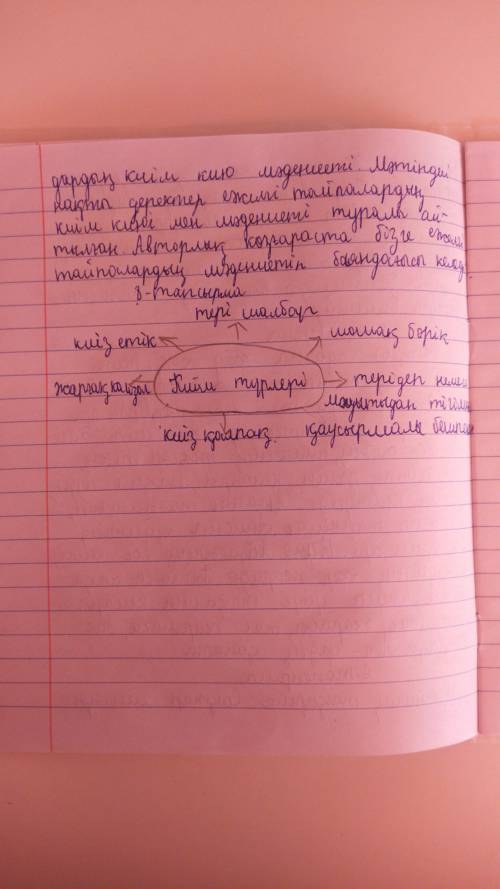 дардың киім кию мәдениеті. Мәтіндегі
нақты деректер ежелгі тайпалардың
киім киюі мен мәдениеті туралы ай-
тылған. Авторлық көзқараста бізге ежелгі
тайпалардың мәдениетін баяндағысы келеді.
8-тапсырма
тері шалбар
киіз етік
шошақ бөрік
жарғақ
Киім түрлері
теріден немесе
тігілген
киіз қалпақ
қаусырмалы бешпент